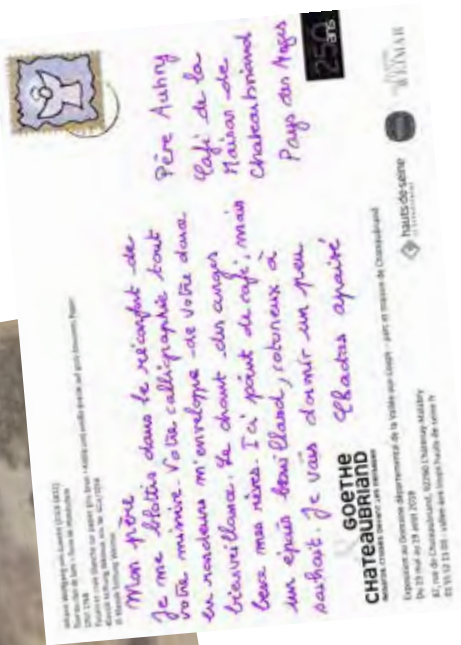 Johann Wolfgang von Goethe (1749-1832)
1787-1788
Mon père
Je me blottis dans le réconfort de
votre missive. Votre calligraphie tout
en rondeurs m'enveloppe de votre douce
bienveillance. Le chant des anges
berce mes rêves. Ici point de café, mais
un épais brouillard, cotonneux à
souhait. Je vais dormir un peu
Chactas apaisé
Père Aubry
Café de la
Maison de
Chateaubriand
Pays des Anges
250
ans
GOETHE
CHATEAUBRIAND
Exposition au Domaine départemental de la Vallée-aux-Loups – parc et maison de Chateaubriand
87, rue de Chateaubriand, 92290 Châtenay-Malabry
hauts-de-seine
WEIMAR